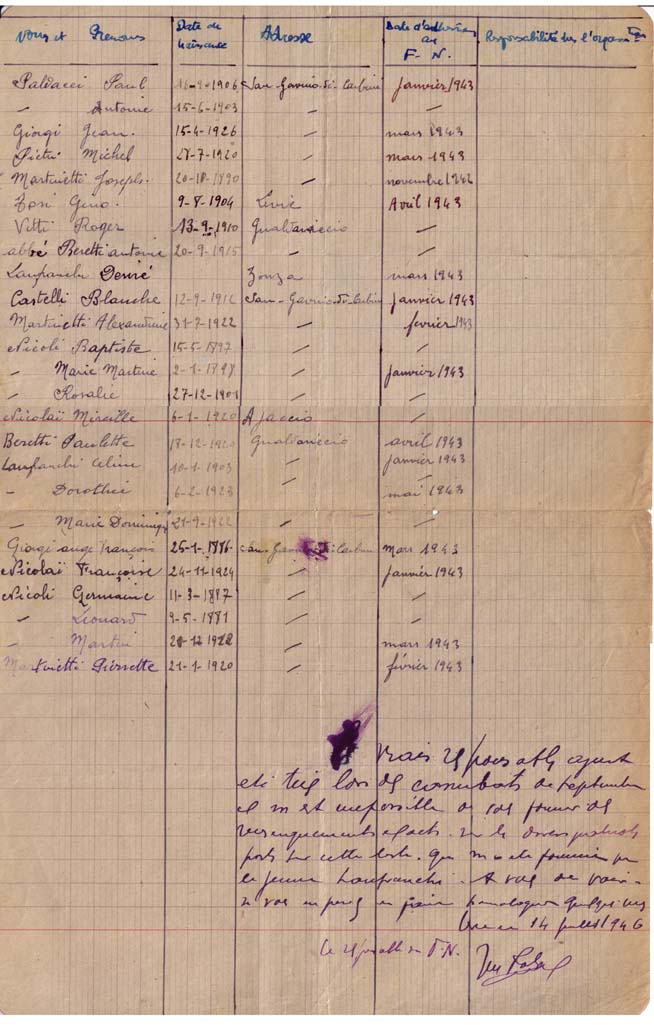 Noms et Prenoms Date de naissance Adresse Date d'adhésion au F.N. Responsabilité ds l'organ.tion
Paldacci Paul 1906 San-Gavino-di-Carbini janvier 1943
― Antoine 15-6-1903 ― ―
Giorgi Jean. 15-4-1926 ― mars 1943
Piétri Michel 28-7-1920 ― mars 1943
Martinetti Joseph. 20-10-1890 ― novembre 1942
Tosi Gino. 9-8-1904 Livie Avril 1943
Vitti Roger 13-9-1910 ― ―
abbé Beretti antoine 20-9-1915 ― ―
Lanfranchi Désiré Zonza mars 1943
Castelli Blanche 12-9-1912 San-Gavino-di-Carbini janvier 1943
Martinetti Alexandrine 31-7-1922 ― fevrier 1943
Nicoli Baptiste 15-5-1897 ― ―
― Marie Martine 2-1-1898 ― janvier 1943
― Rosalie 27-12-1901 ― ―
Nicolaï Mireille 6-1-1920 Ajaccio ―
Beretti Paulette 18-12-1920 avril 1943
Lanfranchi Céline 10-1-1903 ― janvier 1943
― Dorothée 6-2-1923 ― mai 1943
― Marie Dominique 21-9-1922 ― ―
Giorgi ange François 25-1-1886 San-Gavino-di-Carbini mars 1943
Nicolaï Françoise 24-11-1924 ― janvier 1943
Nicoli Germaine 11-3-1887 ― ―
― Léonard 9-5-1881 ― ―
― Martin ― mars 1943
Martinetti Pierrette 21-1-1920 ― février 1943
Vrais responsable ayant
eté tué lors des combats de septembre
il m'est impossible de vous donner des
renseignements exacts. sur les
portés sur cette liste. Que m'a été fournie par
le jeune Lanfranchi. A vous de voir
si vous
14 juillet 1946
Le responsable du F.N.